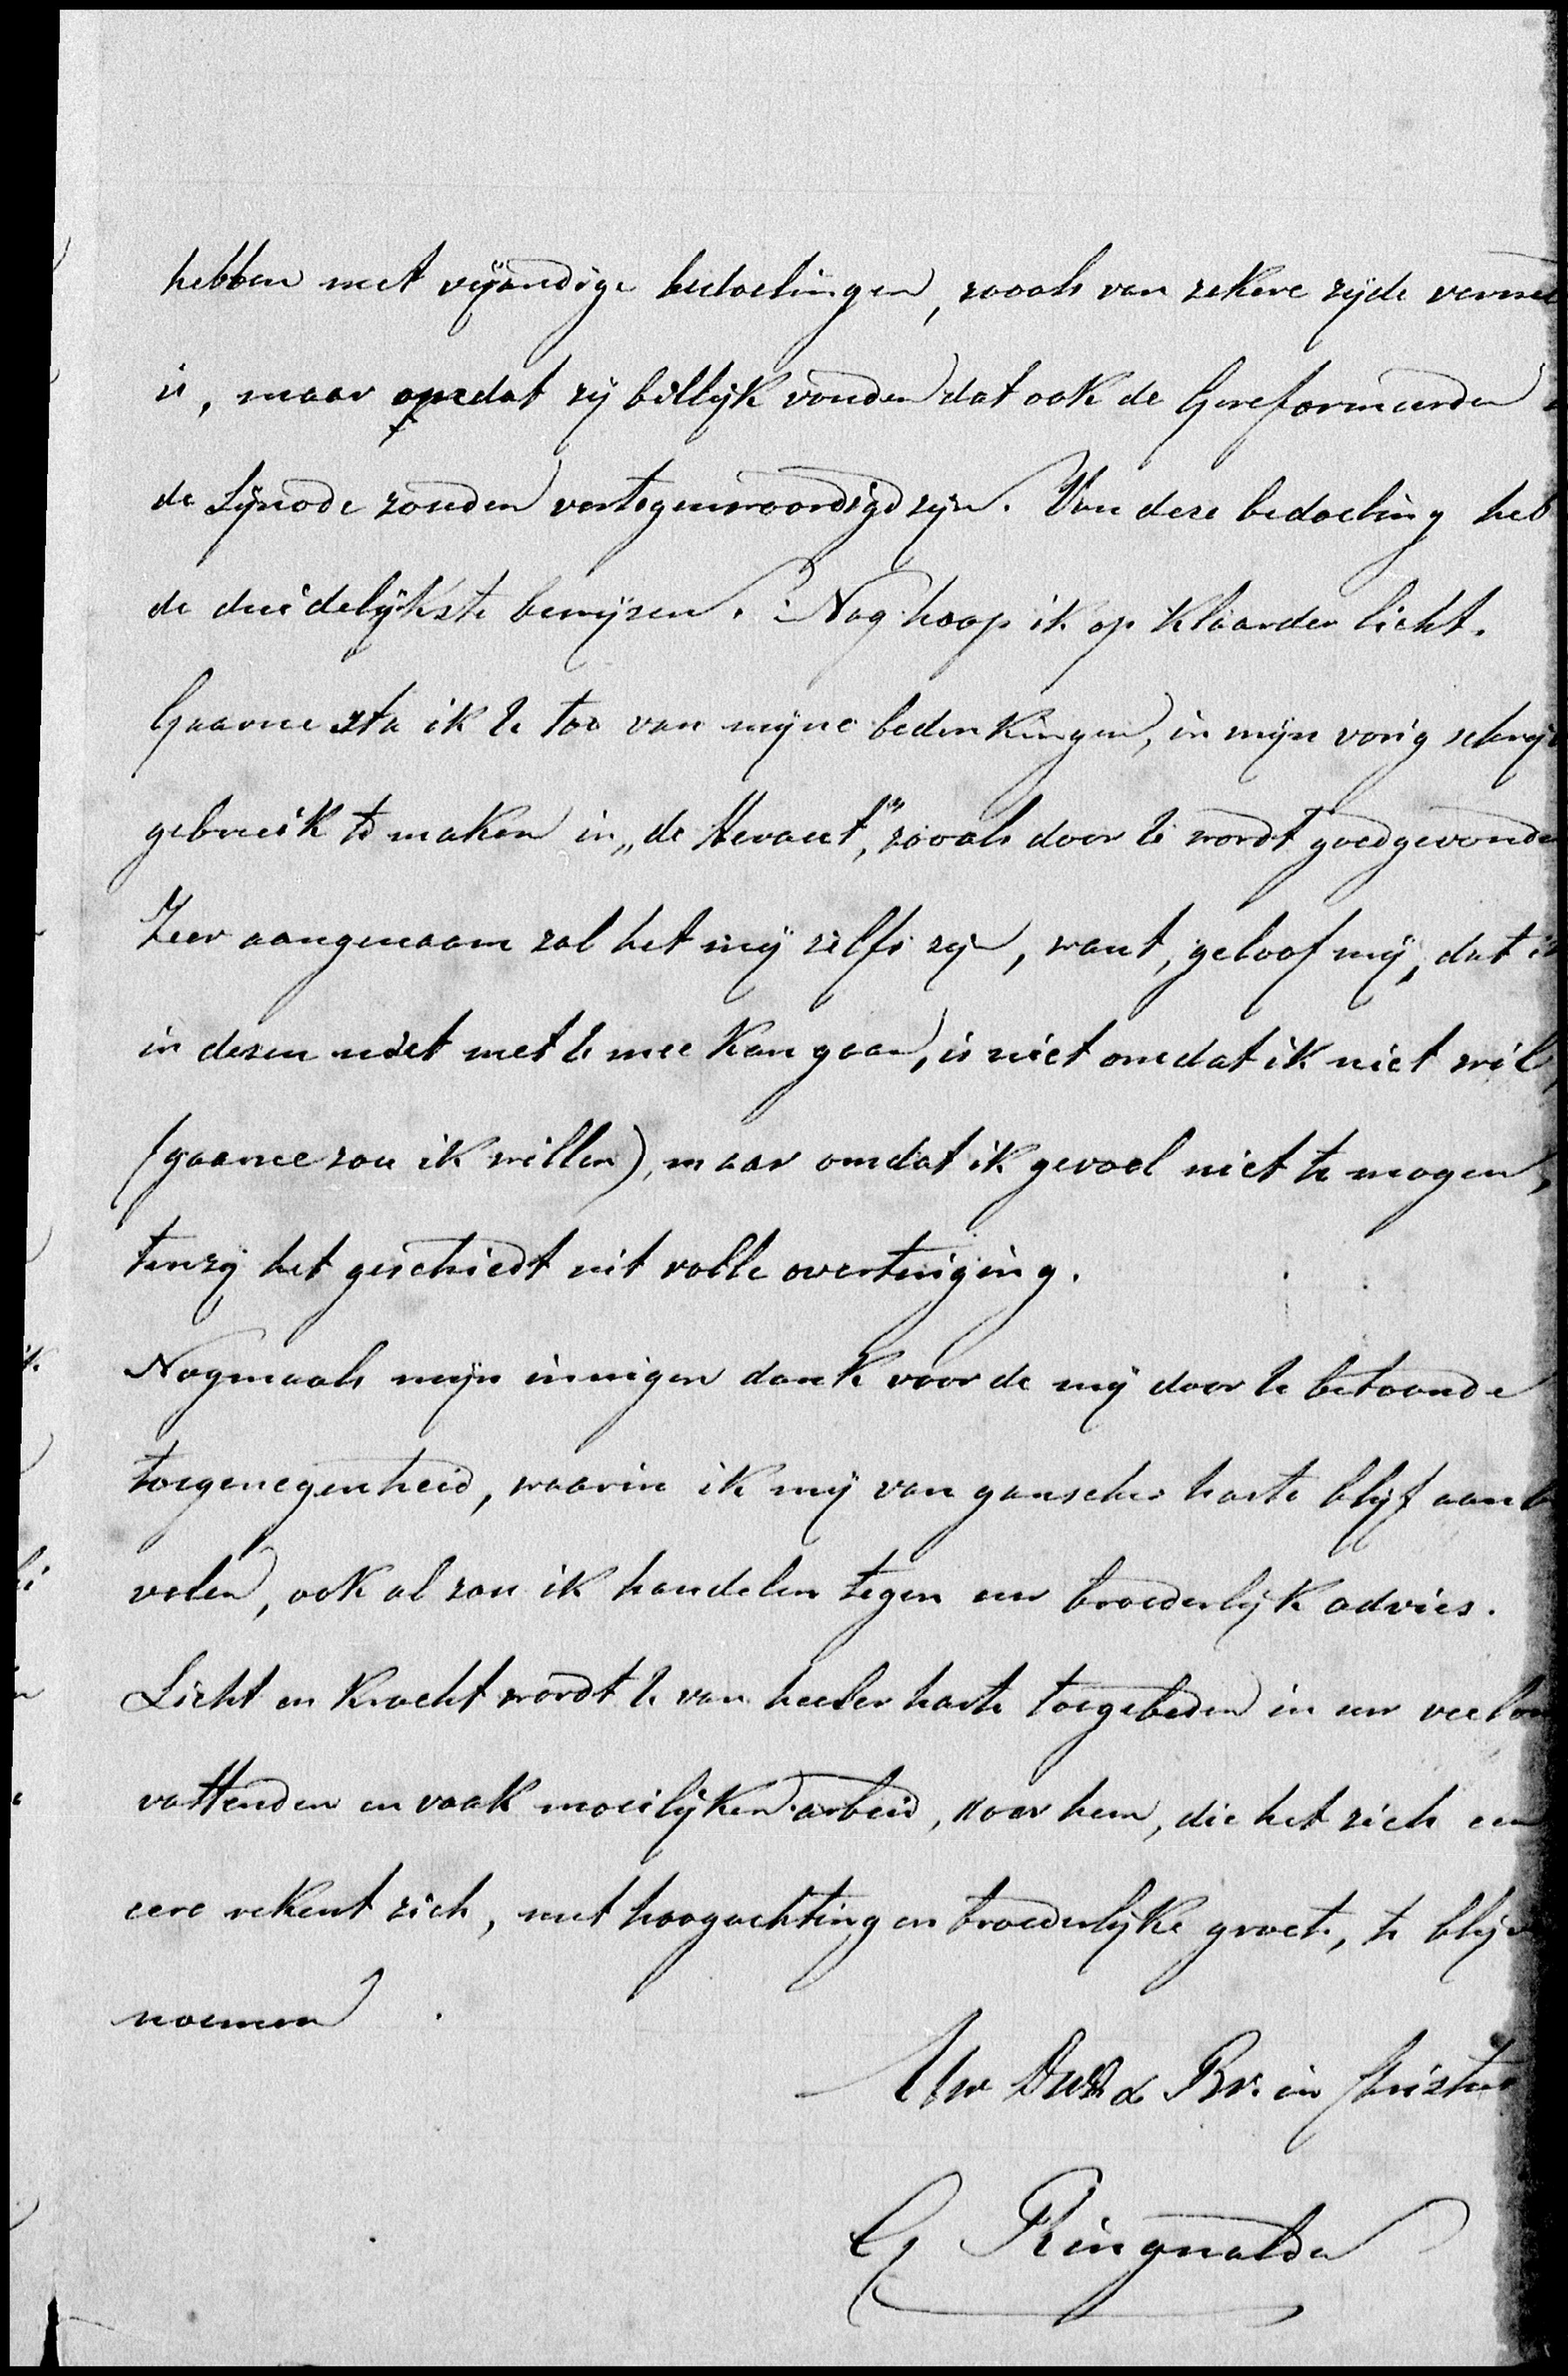 hebben met vijandige bedoelingen, zooals van zekere zijde vermee
is, maar omdat zij billijk vonden dat ook de Gereformeerden
de Synode zouden vertegenwoordigd zijn. Van deze bedoeling heb
de duidelijkste bewijzen. Nog hoop ik op klaarder licht.
Gaarne sta ik U toe van mijne bedenkingen, in mijn vorig schrij
gebruik te maken in „de Heraut", zooals door U wordt goedgevonde
Zeer aangenaam zal het mij zelfs zijn, want, geloof mij, dat ik
in dezen niet met U mee kan gaan, is niet omdat ik niet wil,
(gaarne zou ik willen), maar omdat ik gevoel niet te mogen,
tenzij het geschiedt uit volle overtuiging.
Nogmaals mijn innigen dank voor de mij door U betoonde
toegenegenheid, waarin ik mij van ganscher harte blijf aanb
velen, ook al zou ik handelen tegen uw broederlijk advies.
Licht en kracht wordt U van heeler harte toegebeden in uw veelom
vattenden en vaak moeilijken arbeid, door hem, die het zich een
eere rekent zich, met hoogachting en broederlijke groete, te blijv
noemen
Uw Dw. Br. in Christus
G Ringnalda